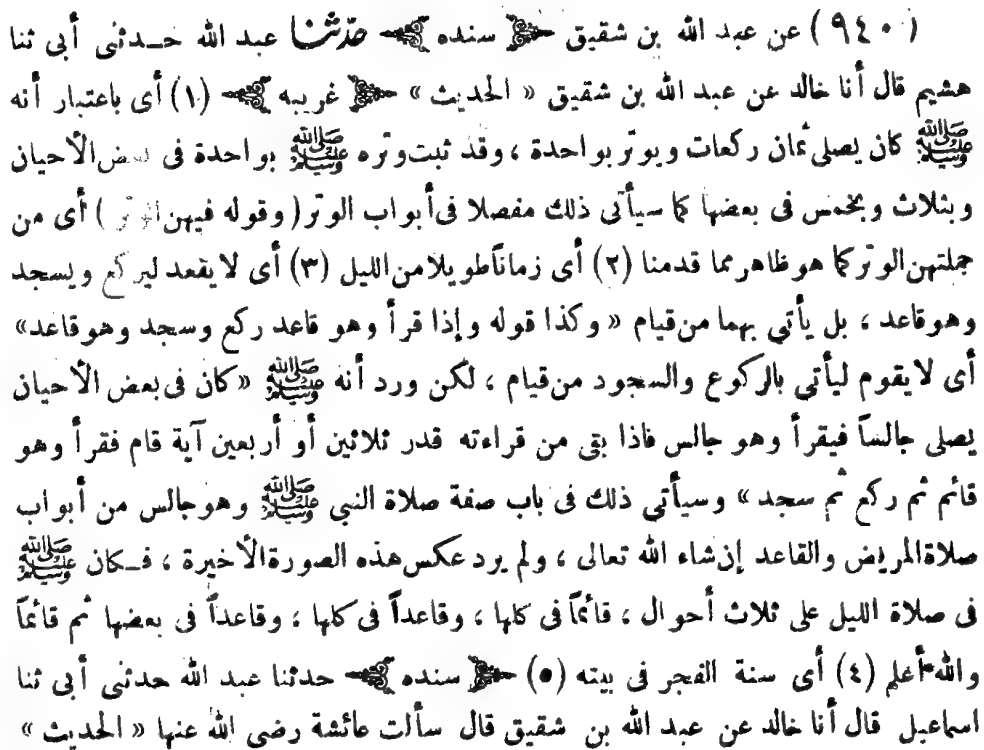 (٩٤٠) عن عبد الله بن شقيق ﴿ سنده ﴾ حدثنا عبد الله حـدثنى أبى ثنا
هشيم قال أنا خالد عن عبد الله بن شقيق « الحديث » ﴿ غريبه ﴾ (١) أى باعتبار أنه
ﷺ كان يصلى ثمان ركعات ويوتر بواحدة ، وقد ثبت وتره ﷺ بواحدة فى بعض الأحيان
وبثلاث وبخمس فى بعضها كما سيأتى ذلك مفصلا فى أبواب الوتر (وقوله فيهن الوتر) أى من
جملتهن الوتر كما هو ظاهر مما قدمنا (٢) أى زماناً طويلا من الليل (٣) أى لا يقعد ليركع ويسجد
وهو قاعد ، بل يأتي بهما من قيام « وكذا قوله وإذا قرأ وهو قاعد ركع وسجد وهو قاعد»
أى لا يقوم ليأتي بالركوع والسجود من قيام ، لكن ورد أنه ﷺ «كان فى بعض الأحيان
يصلى جالساً فيقرأ وهو جالس فاذا بقى من قراءته قدر ثلاثين أو أربعين آية قام فقرأ وهو
قائم ثم ركع ثم سجد » وسيأتي ذلك فى باب صفة صلاة النبي ﷺ وهو جالس من أبواب
صلاة المريض والقاعد إن شاء الله تعالى ، ولم يرد عكس هذه الصورة الأخيرة ، فـكان ﷺ
فى صلاة الليل على ثلاث أحوال ، قائماً فى كلها ، وقاعداً فى كلها ، وقاعداً فى بعضها ثم قائماً
والله أعلم (٤) أى سنة الفجر فى بيته (٥) ﴿ سنده ﴾ حدثنا عبد الله حدثنى أبى ثنا
اسماعيل قال أنا خالد عن عبد الله بن شقيق قال سألت عائشة رضى الله عنها « الحديث »